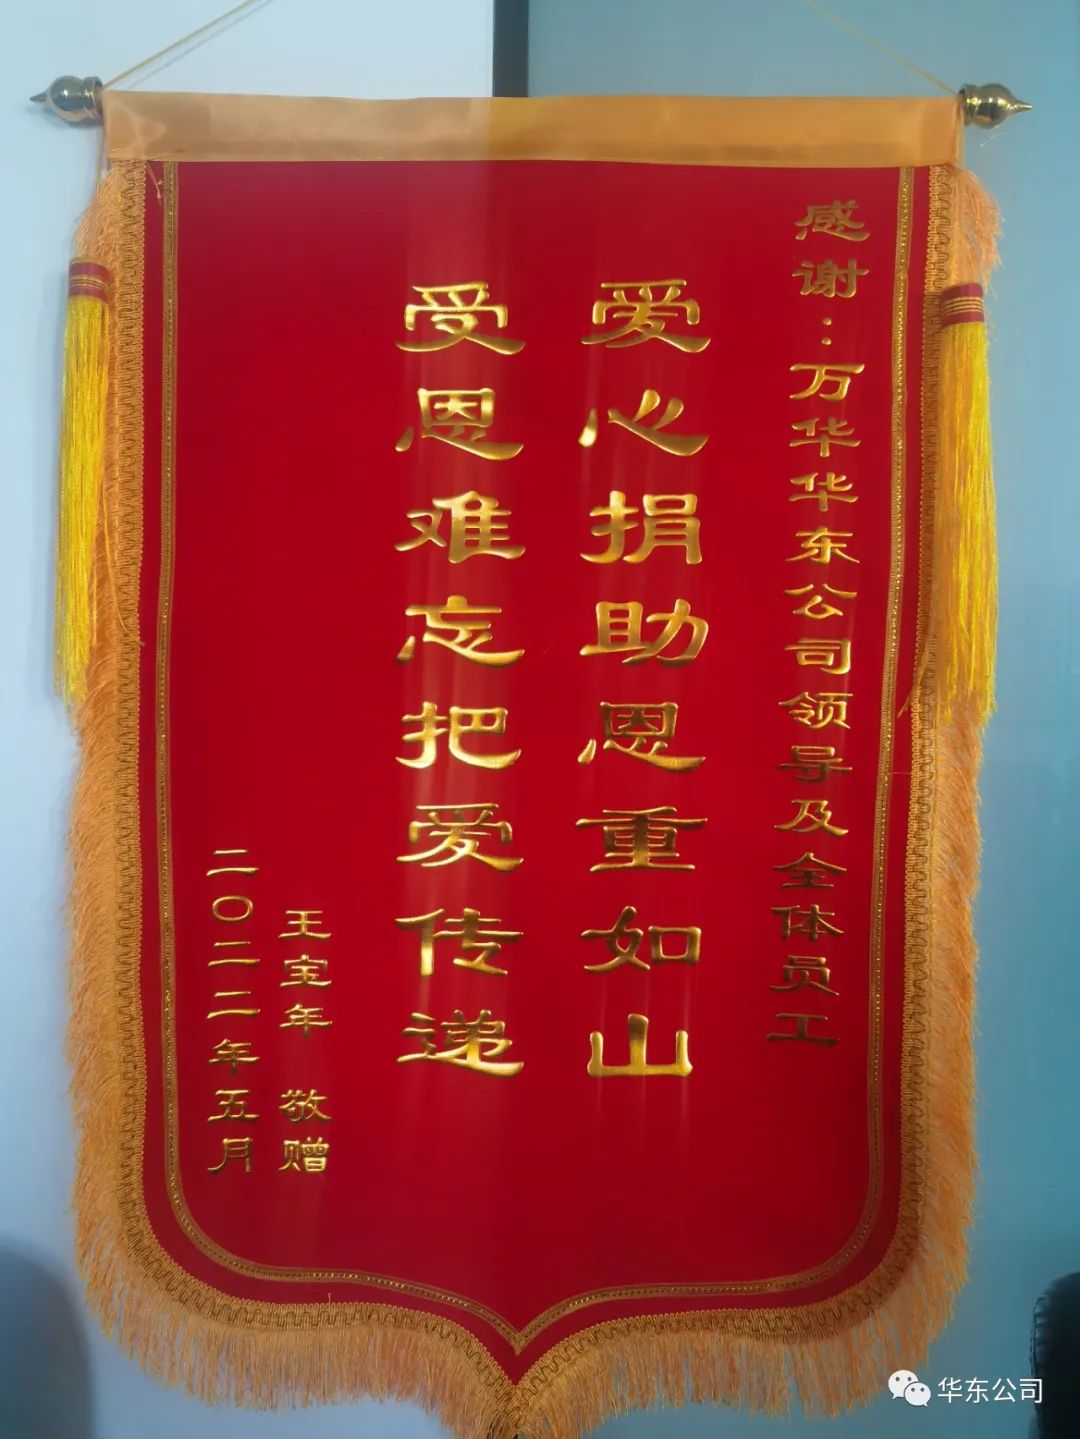 感谢：万华华东公司领导及全体员工
爱心捐助恩重如山
受恩难忘把爱传递
王宝年 敬赠
二〇二二年五月
华东公司